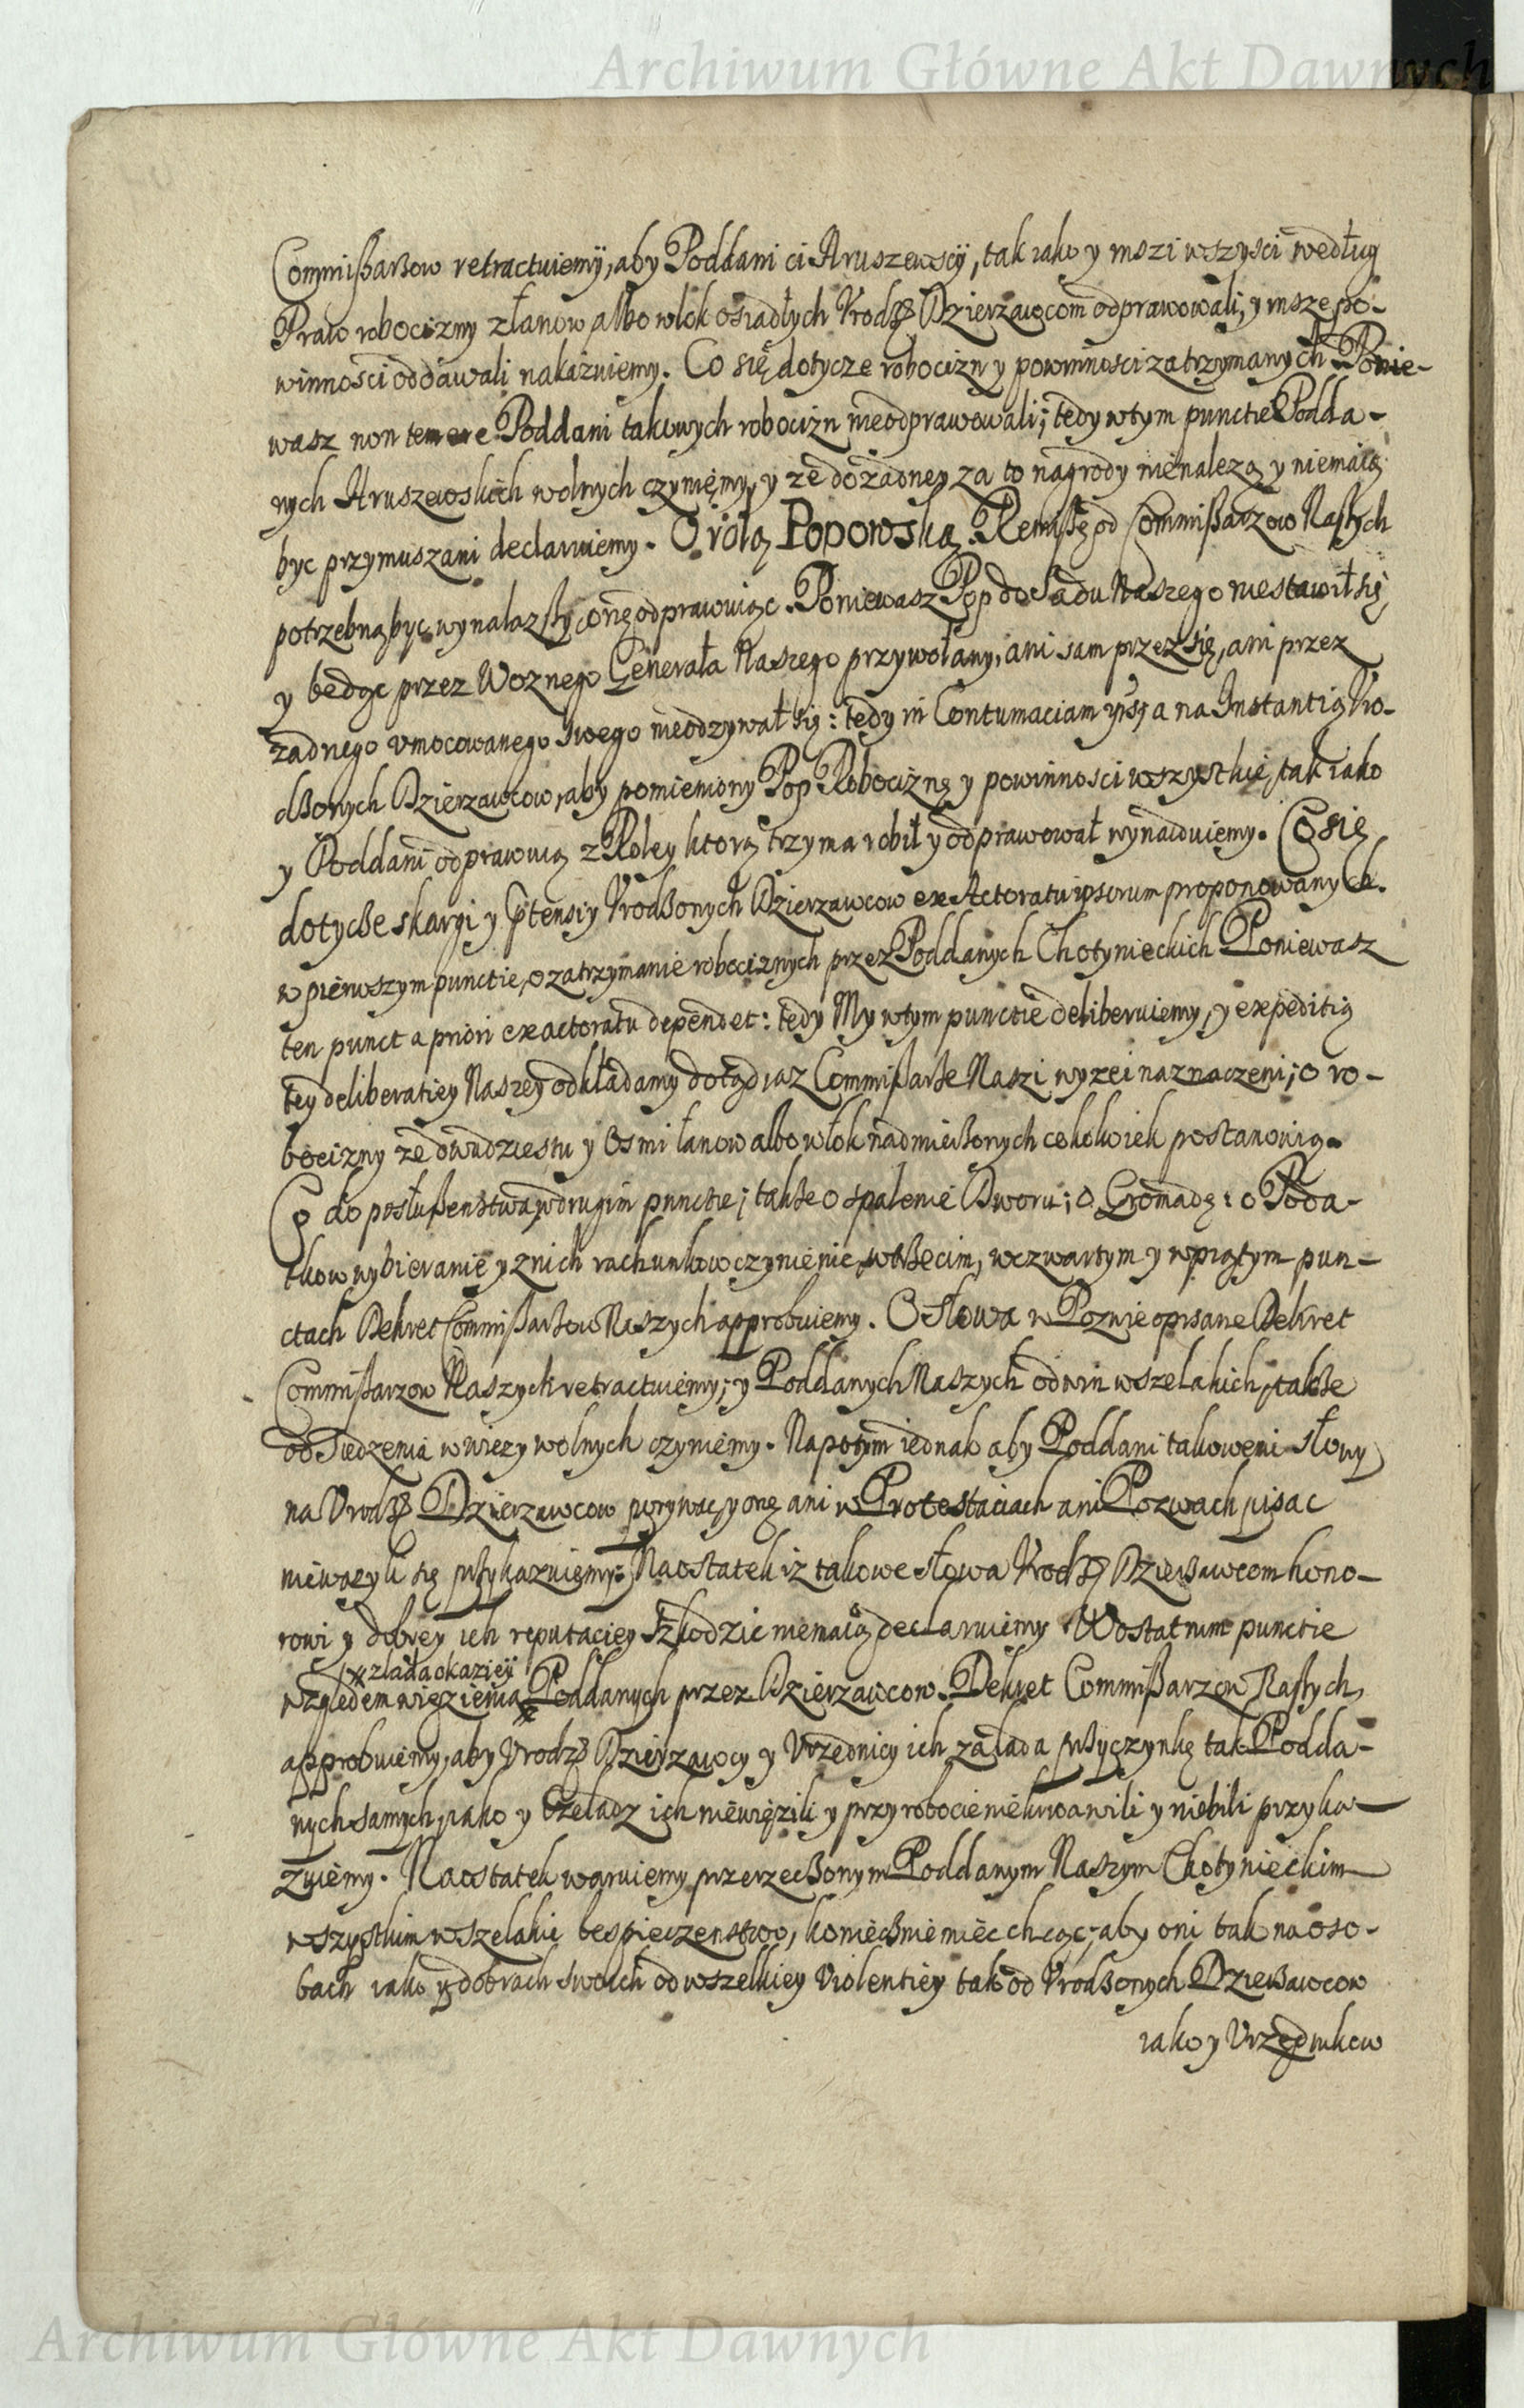 Archiwum Główne Akt Dawnych
Commißarzow retractuiemÿ, aby Poddani ci Hruszewscÿ, tak iako y inszi wszysci według
Praw robocizny złanow albo wlok osiadłych Vrodz Dzierzawcom odprawowali, y insze po-
winnosci oddawali nakazuiemy. Co się dotycze robocizn y powinnosci zatrzymanych Ponie-
wasz non temere Poddani takowych robocizn nieodprawowali; tedy wtym punctie Podda-
nych Hruszewskich wolnych czyniemy, y ze dożadney za to nagrody nienalezą y niemaią
byc przymuszani declaruiemy. O rolą Popowską Remissę od Commißarzow Naszych
potrzebną byc wynalazszy, onę odprawuiąc. Poniewasz Pop do Sądu Naszego niestawił się,
y bedąc przez Woznego Generała Naszego przywołany, ani sam przez się, ani przez
zadnego vmocowanego swego nieodzywał się: tedy in Contumaciam ipsiȝ a na Instantią Vro-
dzonych Dzierzawcow, aby pomieniony Pop Robociznę y powinnosci wszystkie, tak iako
y Poddani odprawuią z Roley ktorą trzyma robił y odprawował wynaiduiemy. Co się
dotycze skargi y Prtensiy Vrodzonych Dzierzawcow ex Actoratu ipsorum proponowanych.
w pierwszym punctie, o zatrzymanie robociznych przez Poddanych Chotynieckich Poniewasz
ten punct a priori ex actoratu dependet: tedy My wtym punctie deliberuiemy, y expeditią
tey deliberatiey Naszey odkładamy dotąd iaz Commißarze Naszi wyzei naznaczeni; o ro-
bocizny ze dwudziestu y Osmi łanow albo włok nadmienionych cokolwiek postanowią.
Co do posłußenstwa, wdrugim punctie; także o spalenie Dworu; o Gromadę: o Poda-
tkow wybieranie y znich rachunkow czynienie, wtrzecim, wczwartym y wpiątym pun-
ctach Dekret Commißarzow Naszych approbuiemy. O słowa w Pozwie opisane Dekret
Commißarzow Naszych retractuiemy; y Poddanych Naszych od win wszelakich, także
od Siedzenia w wiezy wolnych czyniemy. Napotym iednak aby Poddani takowemi słowy
na Vrodz Dzierzawcow porywac, y onę ani w Protestaciach ani Pozwach pisac
niewazyli się przykazuiemy: Naostatek iz takowe słowa Vrodz Dzierzawcom hono-
rowi y dobrey ich reputaciey szkodzic niemaią declaruiemy Wostatnim punctie
x zlada okaziey
względem więzienia x Poddanych przez Dzierzawcow. Dekret Commißarzow Naszych
approbuiemy, aby Vrodz Dzierzawcy y Vrzednicy ich za lada przyczynką tak Podda-
nych samych, iako y Czeladz ich niewięzili y przy robocie niekrwawili y niebili przyka-
zuiemy. Naostatek waruiemy przerzeczonym Poddanym Naszym Chotynieckim
wszystkim wszelakie bespieczenstwo, koniecznie miec chcąc, aby oni tak na oso-
bach iako y dobrach swoich od wszelkiey violentiey tak od Vrodzonych Dzierzawcow
iako y Vrzędnikow
Archiwum Główne Akt Dawnych